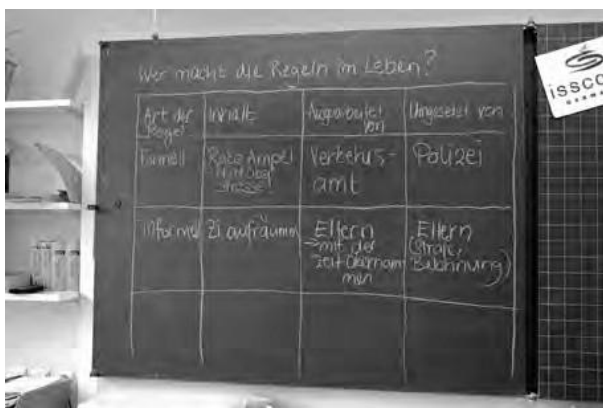 Wer macht die Regeln im Leben?
Art der Regel
Inhalt
Ausgearbeitet von
Umgesetzt von
Formell
Rote Ampel
strasse
Verkehrs-
amt
Polizei
Informell
Zi aufräumen
Eltern
→ mit der
Zeit übernom
men
Eltern
(Strafe,
Belohnung)
issco